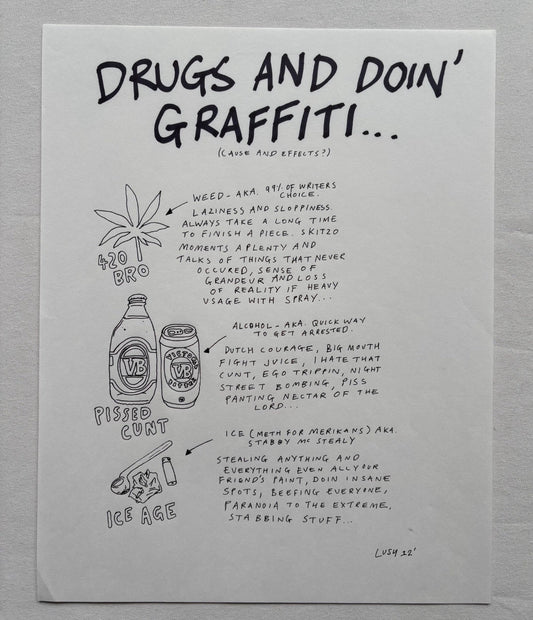 DRUGS AND DOIN'
GRAFFITI...
(CAUSE AND EFFECTS?)
WEED - AKA. 99% OF WRITERS
CHOICE.
LAZINESS AND SLOPPINESS.
ALWAYS TAKE A LONG TIME
TO FINISH A PIECE. SKITZO
MOMENTS APLENTY AND
TALKS OF THINGS THAT NEVER
OCCURED, SENSE OF
GRANDEUR AND LOSS
OF REALITY IF HEAVY
USAGE WITH SPRAY...
420
BRO
ALCOHOL - AKA. QUICK WAY
TO GET ARRESTED.
DUTCH COURAGE, BIG MOUTH
FIGHT JUICE, I HATE THAT
CUNT, EGO TRIPPIN, NIGHT
STREET BOMBING, PISS
PANTING NECTAR OF THE
LORD...
VB
VB
PISSED
CUNT
ICE (METH FOR MERIKANS) AKA.
STABBY MC STEALY
STEALING ANYTHING AND
EVERYTHING EVEN ALL YOUR
FRIEND'S PAINT, DOIN INSANE
SPOTS, BEEFING EVERYONE,
PARANOIA TO THE EXTREME,
STABBING STUFF...
ICE AGE
LUSH 22'